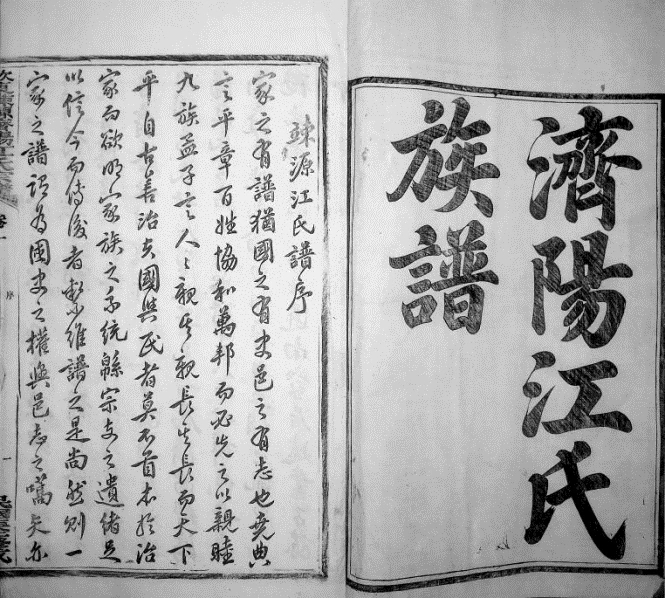 濟陽江氏
族譜
竦源江氏譜序
家之有譜猶國之有史邑之有志也堯典
言平章百姓協和萬邦而必先之以親睦
九族孟子言人人親其親長其長而天下
平自古善治其國與民者莫不首本於治
家而欲明家族之系統緜宗支之遺緒足
以信今而傳後者繄維譜之是尚然則一
家之譜謂為國史之權輿邑志之嚆矢亦
卷一
序
一